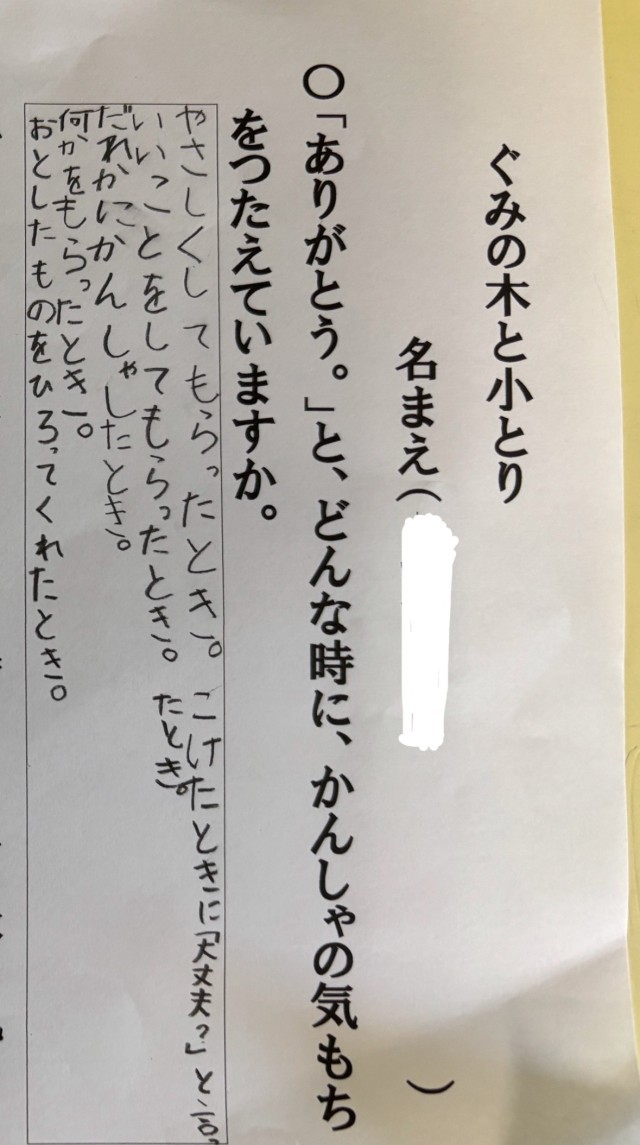 ぐみの木と小とり
名まえ（　）
〇「ありがとう。」と、どんな時に、かんしゃの気もち
をつたえていますか。
やさしくしてもらったとき。こけたときに「大丈夫?」と言っ
たとき。
いいことをしてもらったとき。
だれかにかんしゃしたとき。
何かをもらったとき。
おとしたものをひろってくれたとき。